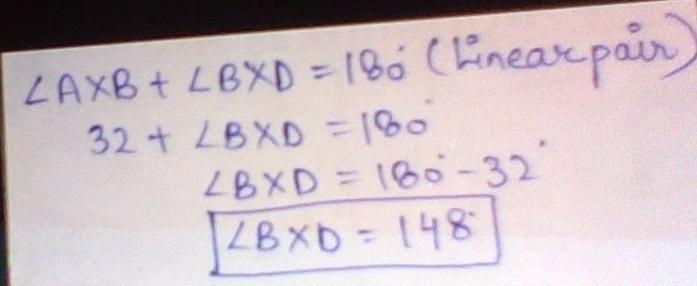 ∠AXB + ∠BXD = 180° (Linear pair)
32 + ∠BXD = 180°
∠BXD = 180° - 32°
∠BXD = 148°